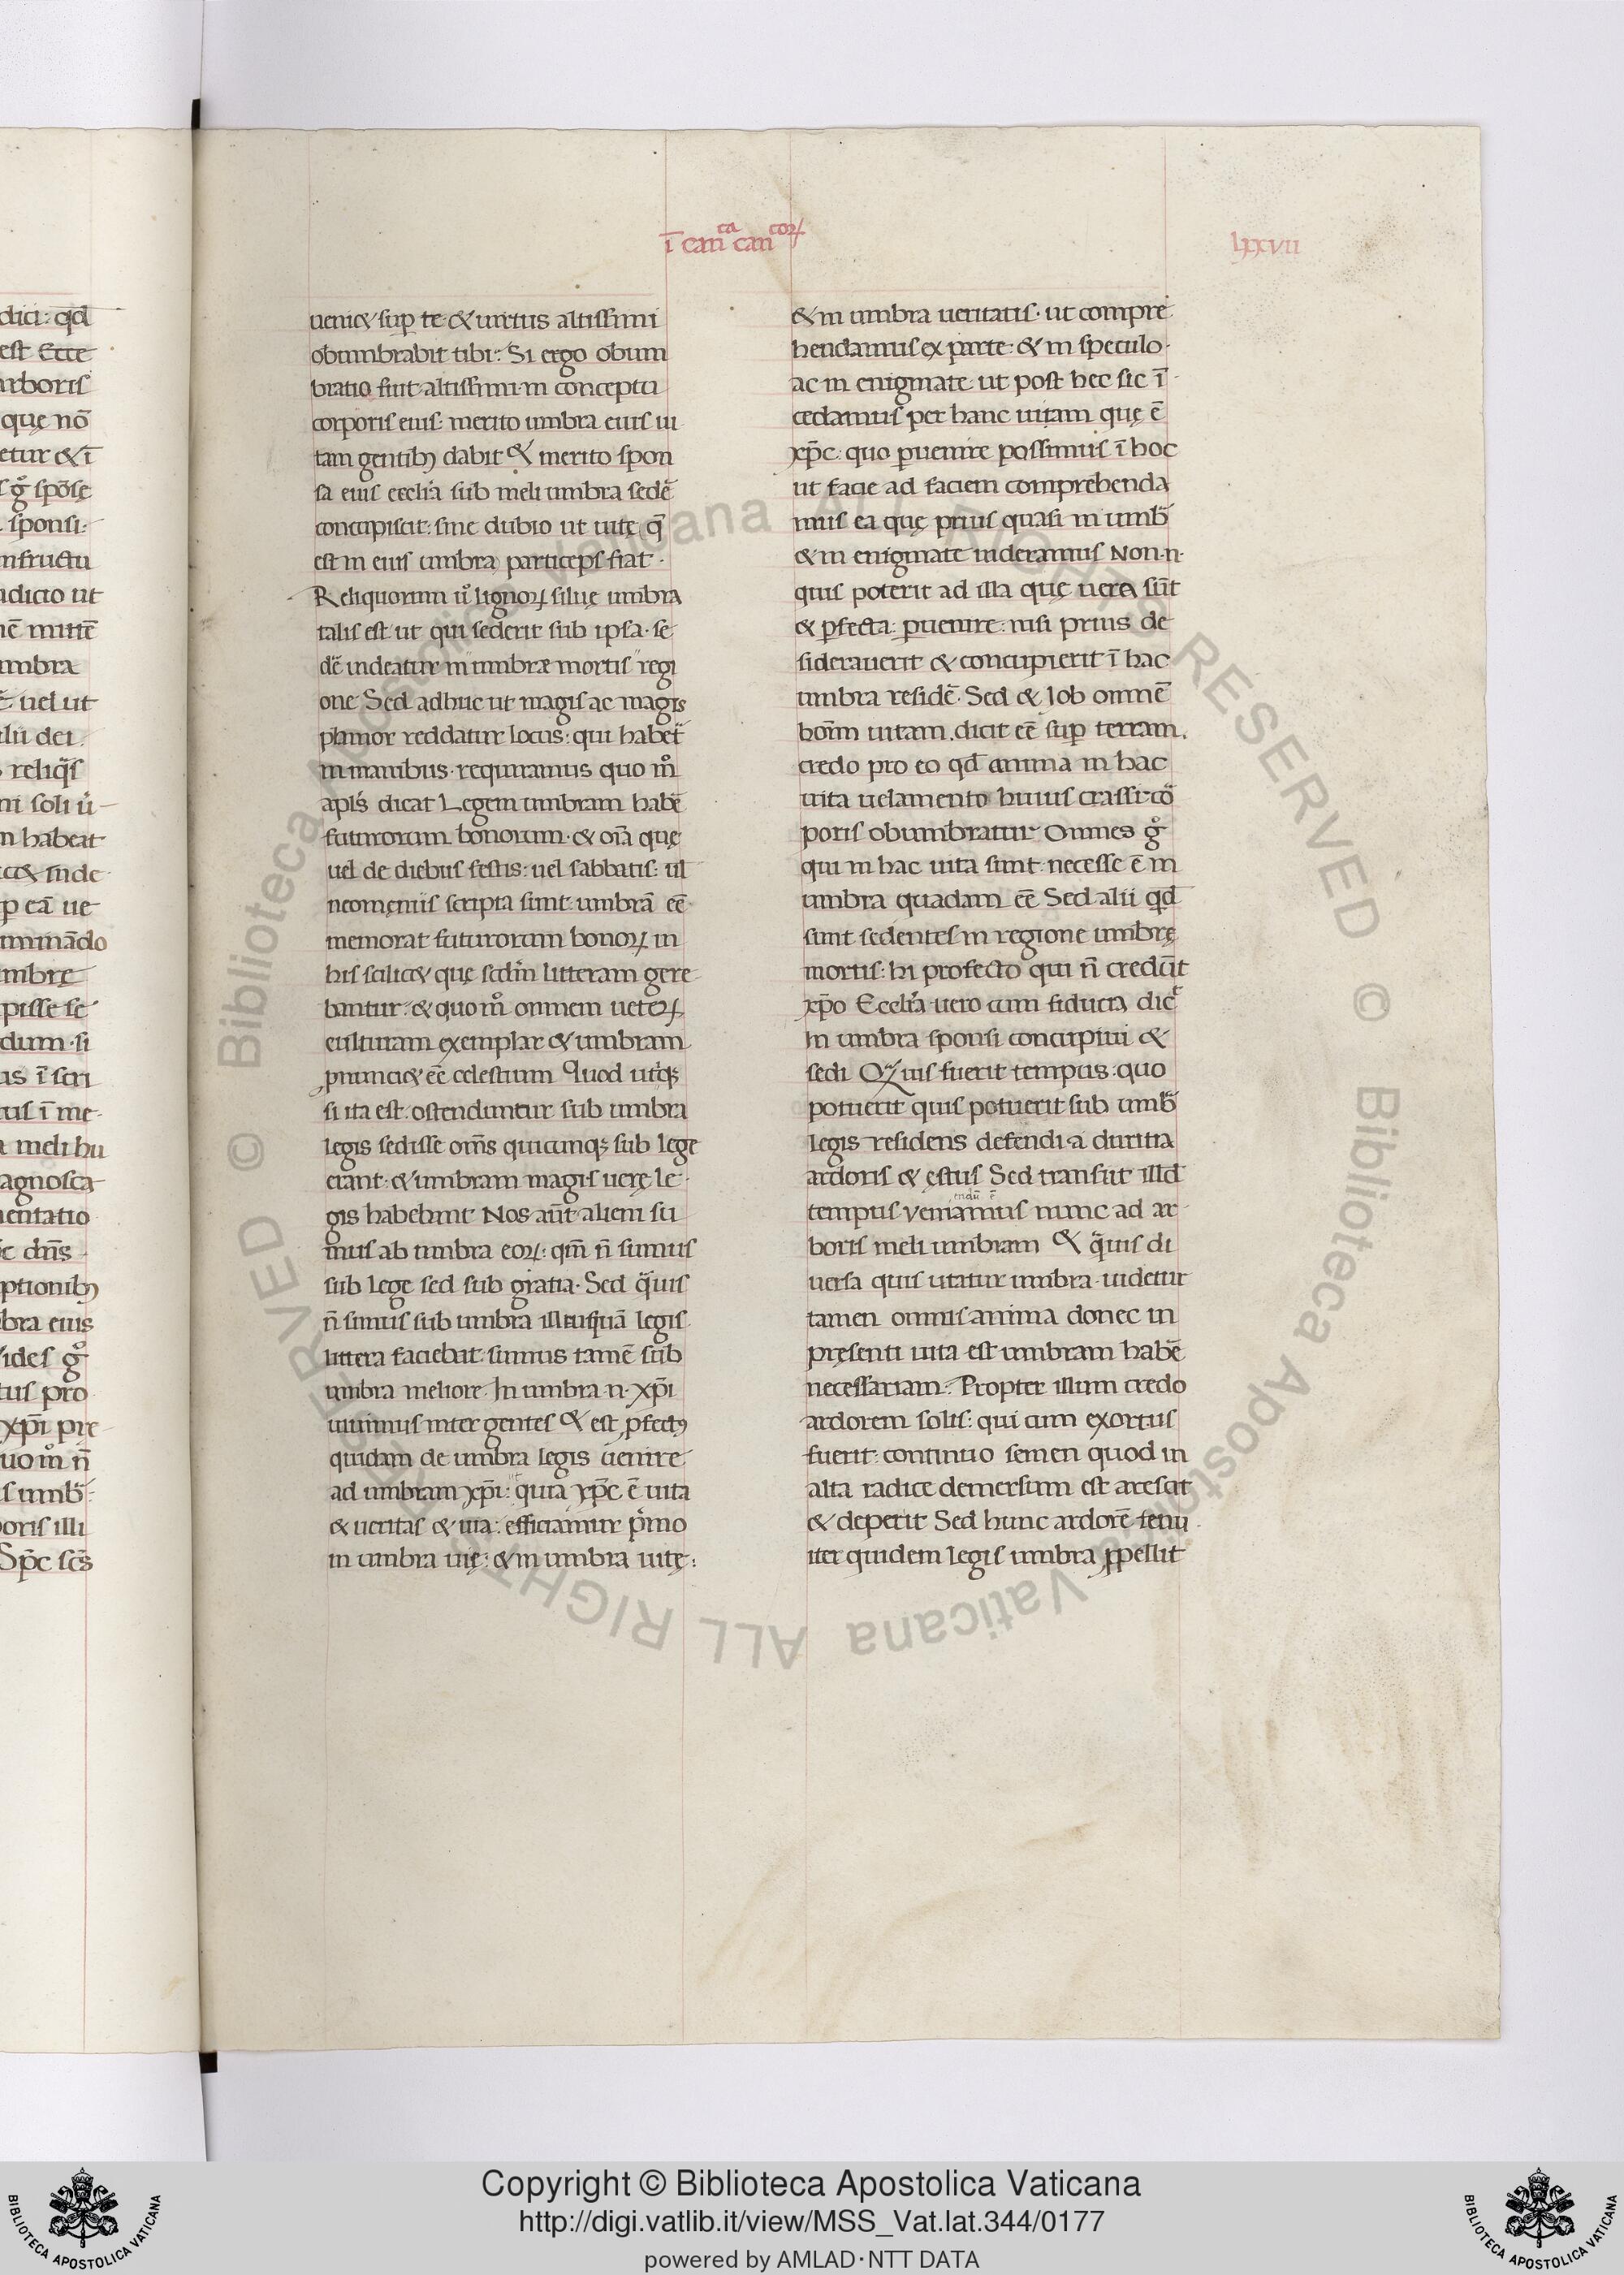 ī can^ca can^coꝝ
lxxvii
dici: qd̄
est Ecce
arboris
que nō
etur & ī
s gͦ spōsę
sponsi.
nfructu
ndicio ut
nē mittē
umbra
uel ut
ilii dei.
reliqͣs
ni soli ū
n habeat
p eā ue
minādo
mbrę
pisse se
dum. si
us ī scri
tus ī me.
a meli hu
agnosca
entatio
c dn̄s
ptionibꝫ
bra eius
ides gͦ
tus pro
xp̄i prę
uo mͦ n̄
s umbͣ:
oris illi
Sp̄c sc̄s
ueniet sup̄ te. & uirtus altissimi
obumbrabit tibi: Si ergo obum
bratio fuit altissimi in conceptu
corporis eius: merito umbra eius ui
tam gentibꝫ dabit & merito spon
sa eius eccl̄ia sub meli umbra sedē
concupiscit: sine dubio ut uitę q̄
est in eius umbra particeps fiat.
Reliquorum ū lignoꝝ siluę umbra
talis est ut qui sederit sub ipsa. se
dē uideatur in umbræ mortis regi
one Sed adhuc ut magis ac magis
planior reddatur locus: qui habet̄
in manibus. requiramus quo mͦ
apl̄s dicat Legem umbram habē
futurorum bonorum. & om̄a quę
uel de diebus festis: uel sabbatis: ul̄
neomeniis scripta sunt. umbrā eē
memorat futurorum bonoꝝ in
his scilicet quę scdm̄ litteram gere
bantur: & quo mͦ omnem ueteꝝ
culturam exemplar & umbram
pnunciet eē celestium Quod utiqꝫ
si ita est. ostenduntur sub umbra
legis sedisse om̄s quicunqꝫ sub lege
erant. & umbram magis uerę le.
gis habebant Nos aūt alieni su
mus ab umbra eoꝝ: qm̄ n̄ sumus
sub lege sed sub gratia. Sed qͣuis
n̄ simus sub umbra illa quā legis
littera faciebat. sumus tamē sub
umbra meliore. In umbra n. xp̄i
uiuimus inter gentes & est pfectꝰ
quidam de umbra legis uenire
ad umbram xp̄i: quia xp̄c ē uita
& ueritas & uia: efficiamur pͥmo
in umbra uię: & in umbra uitę:
& in umbra ueritatis. ut compre
hendamus ex parte. & in speculo.
ac in enigmate ut post hec sic ī
cedamus per hanc uitam quę ē
xp̄c. quo puenire possimus ī hoc
ut facie ad faciem comprehenda
mus ea quę prius quasi in umbͣ
& in enigmate uideramus Non. n.
quis poterit ad illa quę uera sūt
& pfecta. puenire: nisi prius de
siderauerit & concupierit ī hac
umbra residē. Sed & Iob omnē
hoīm uitam. dicit eē sup̄ terram.
credo pro eo qd̄ anima in hac
uita uelamento huius crassi cō
poris obumbratur Omnes gͦ
qui in hac uita sunt. necesse ē in
umbra quadam eē Sed alii qd̄
sunt sedentes in regione umbrę
mortis: hi profecto qui n̄ credūt
xp̄o Eccl̄ia uero cum fiducia dicͭ
In umbra sponsi concupiui &
sedi Quis fuerit tempus. quo
potuerit quis potuerit sub umbͣ
legis residens defendi a duritia
ardoris & ęstus Sed transiit illd̄
endū ē
tempus veniamus nunc ad ar
boris meli umbram & qͣuis di
uersa quis utatur umbra. uidetur
tamen omnis anima donec in
pręsenti uita est umbram habē
necessariam. Propter illum credo
ardorem solis: qui cum exortus
fuerit: continuo semen quod in
alta radice demersum est arescit
& deperit Sed hunc ardorē tenu
iter quidem legis umbra ppellit
Copyright © Biblioteca Apostolica Vaticana
http://digi.vatlib.it/view/MSS_Vat.lat.344/0177
powered by AMLAD·NTT DATA
BIBLIOTECA APOSTOLICA VATICANA
BIBLIOTECA APOSTOLICA VATICANA
© Biblioteca Apostolica Vaticana ALL RIGHTS RESERVED © Biblioteca Apostolica Vaticana ALL RIGHTS RESERVED